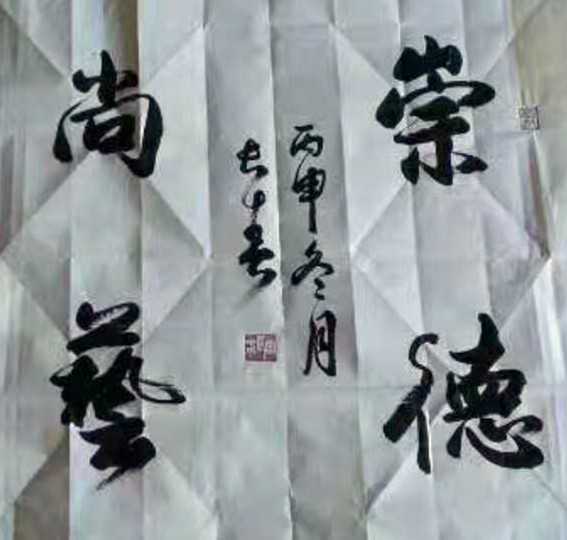 崇德
尚藝
丙申冬月